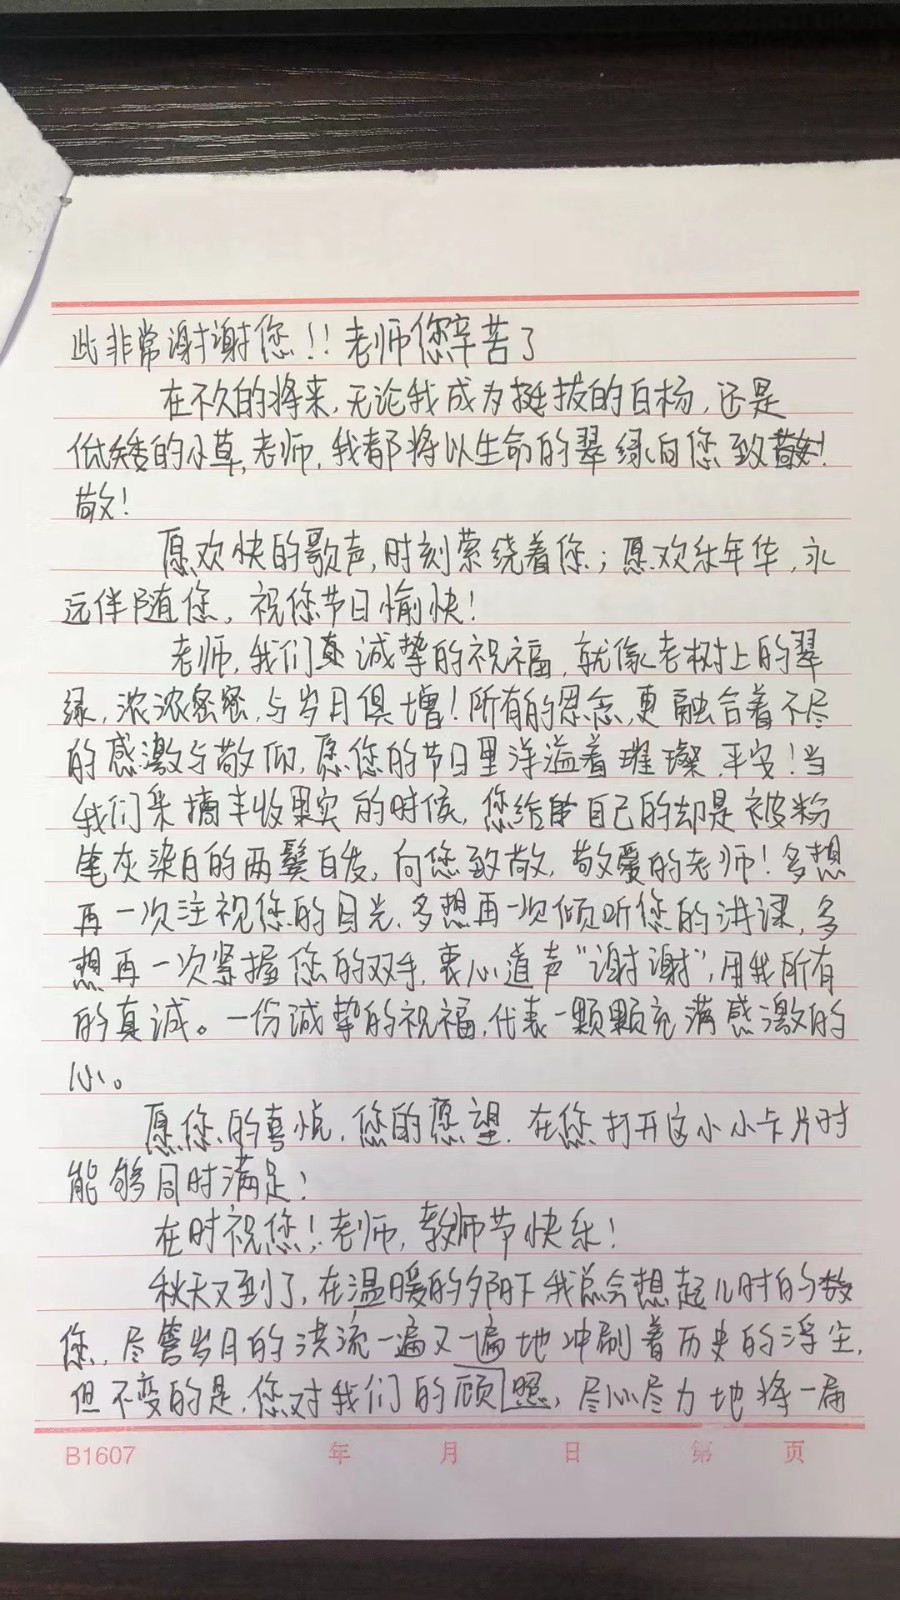 此非常谢谢您！！老师您辛苦了
在不久的将来,无论我成为挺拔的白杨,还是
低矮的小草,老师,我都将以生命的翠绿向您致
敬！
愿欢快的歌声,时刻萦绕着您；愿欢乐年华,永
远伴随您,祝您节日愉快！
老师,我们真诚挚的祝福,就像老树上的翠
绿,浓浓密密,与岁月俱增！所有的恩念,更融合着不尽
的感激与敬仰,愿您的节日里洋溢着璀璨,平安！当
我们采摘丰收果实的时候,您给自己的却是被粉
笔灰染白的两鬓白发,向您致敬,敬爱的老师！多想
再一次注视您的目光,多想再一次倾听您的讲课,多
想再一次紧握您的双手,衷心道声“谢谢”,用我所有
的真诚。一份诚挚的祝福,代表一颗颗充满感激的
心。
愿您的喜悦,您的愿望,在您打开这小小卡片时
能够同时满足！
在时祝您！老师,教师节快乐！
秋天又到了,在温暖的夕阳下我总会想起儿时的
您,尽管岁月的洪流一遍又一遍地冲刷着历史的浮尘,
但不变的是,您对我们的顾照,尽心尽力地将一届
B1607 年 月 日 第 页